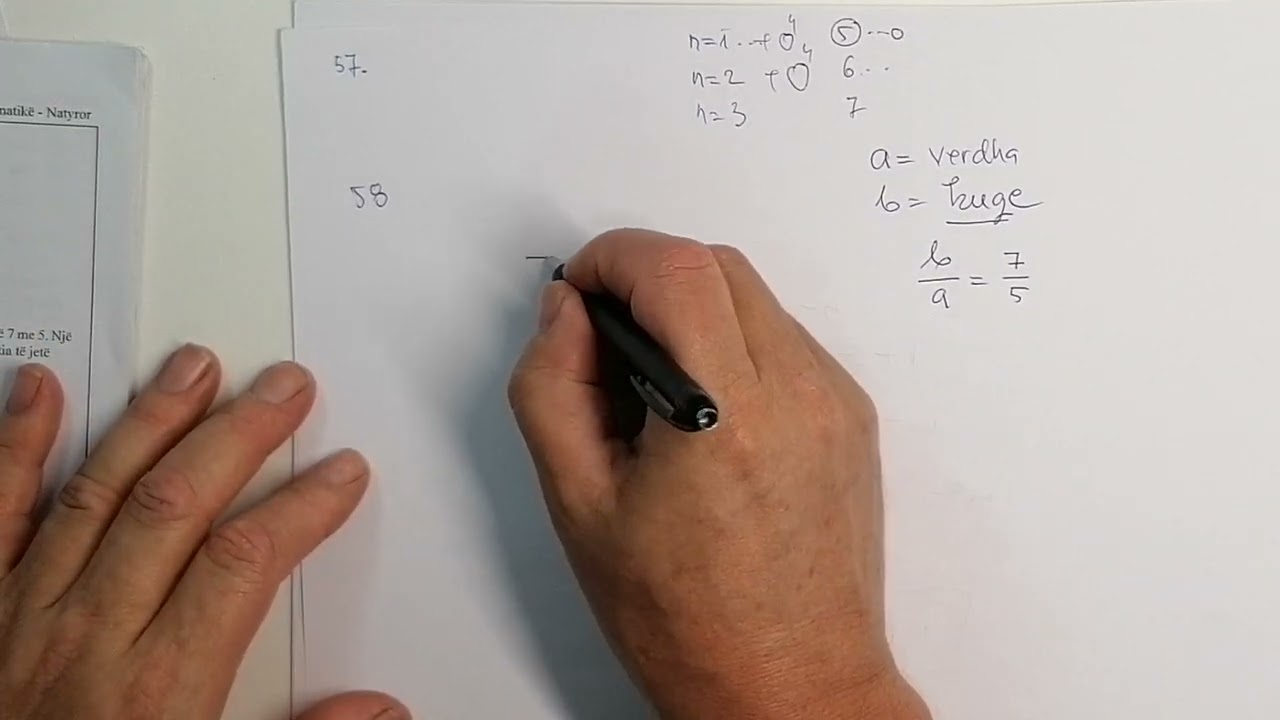 matikë - Natyror
ë 7 me 5. Një
ia të jetë
57.
n=1 ..+O⁴ 5 --0
n=2 +O⁴ 6..
n=3 7
58
a= verdha
b= kuqe
b/a = 7/5